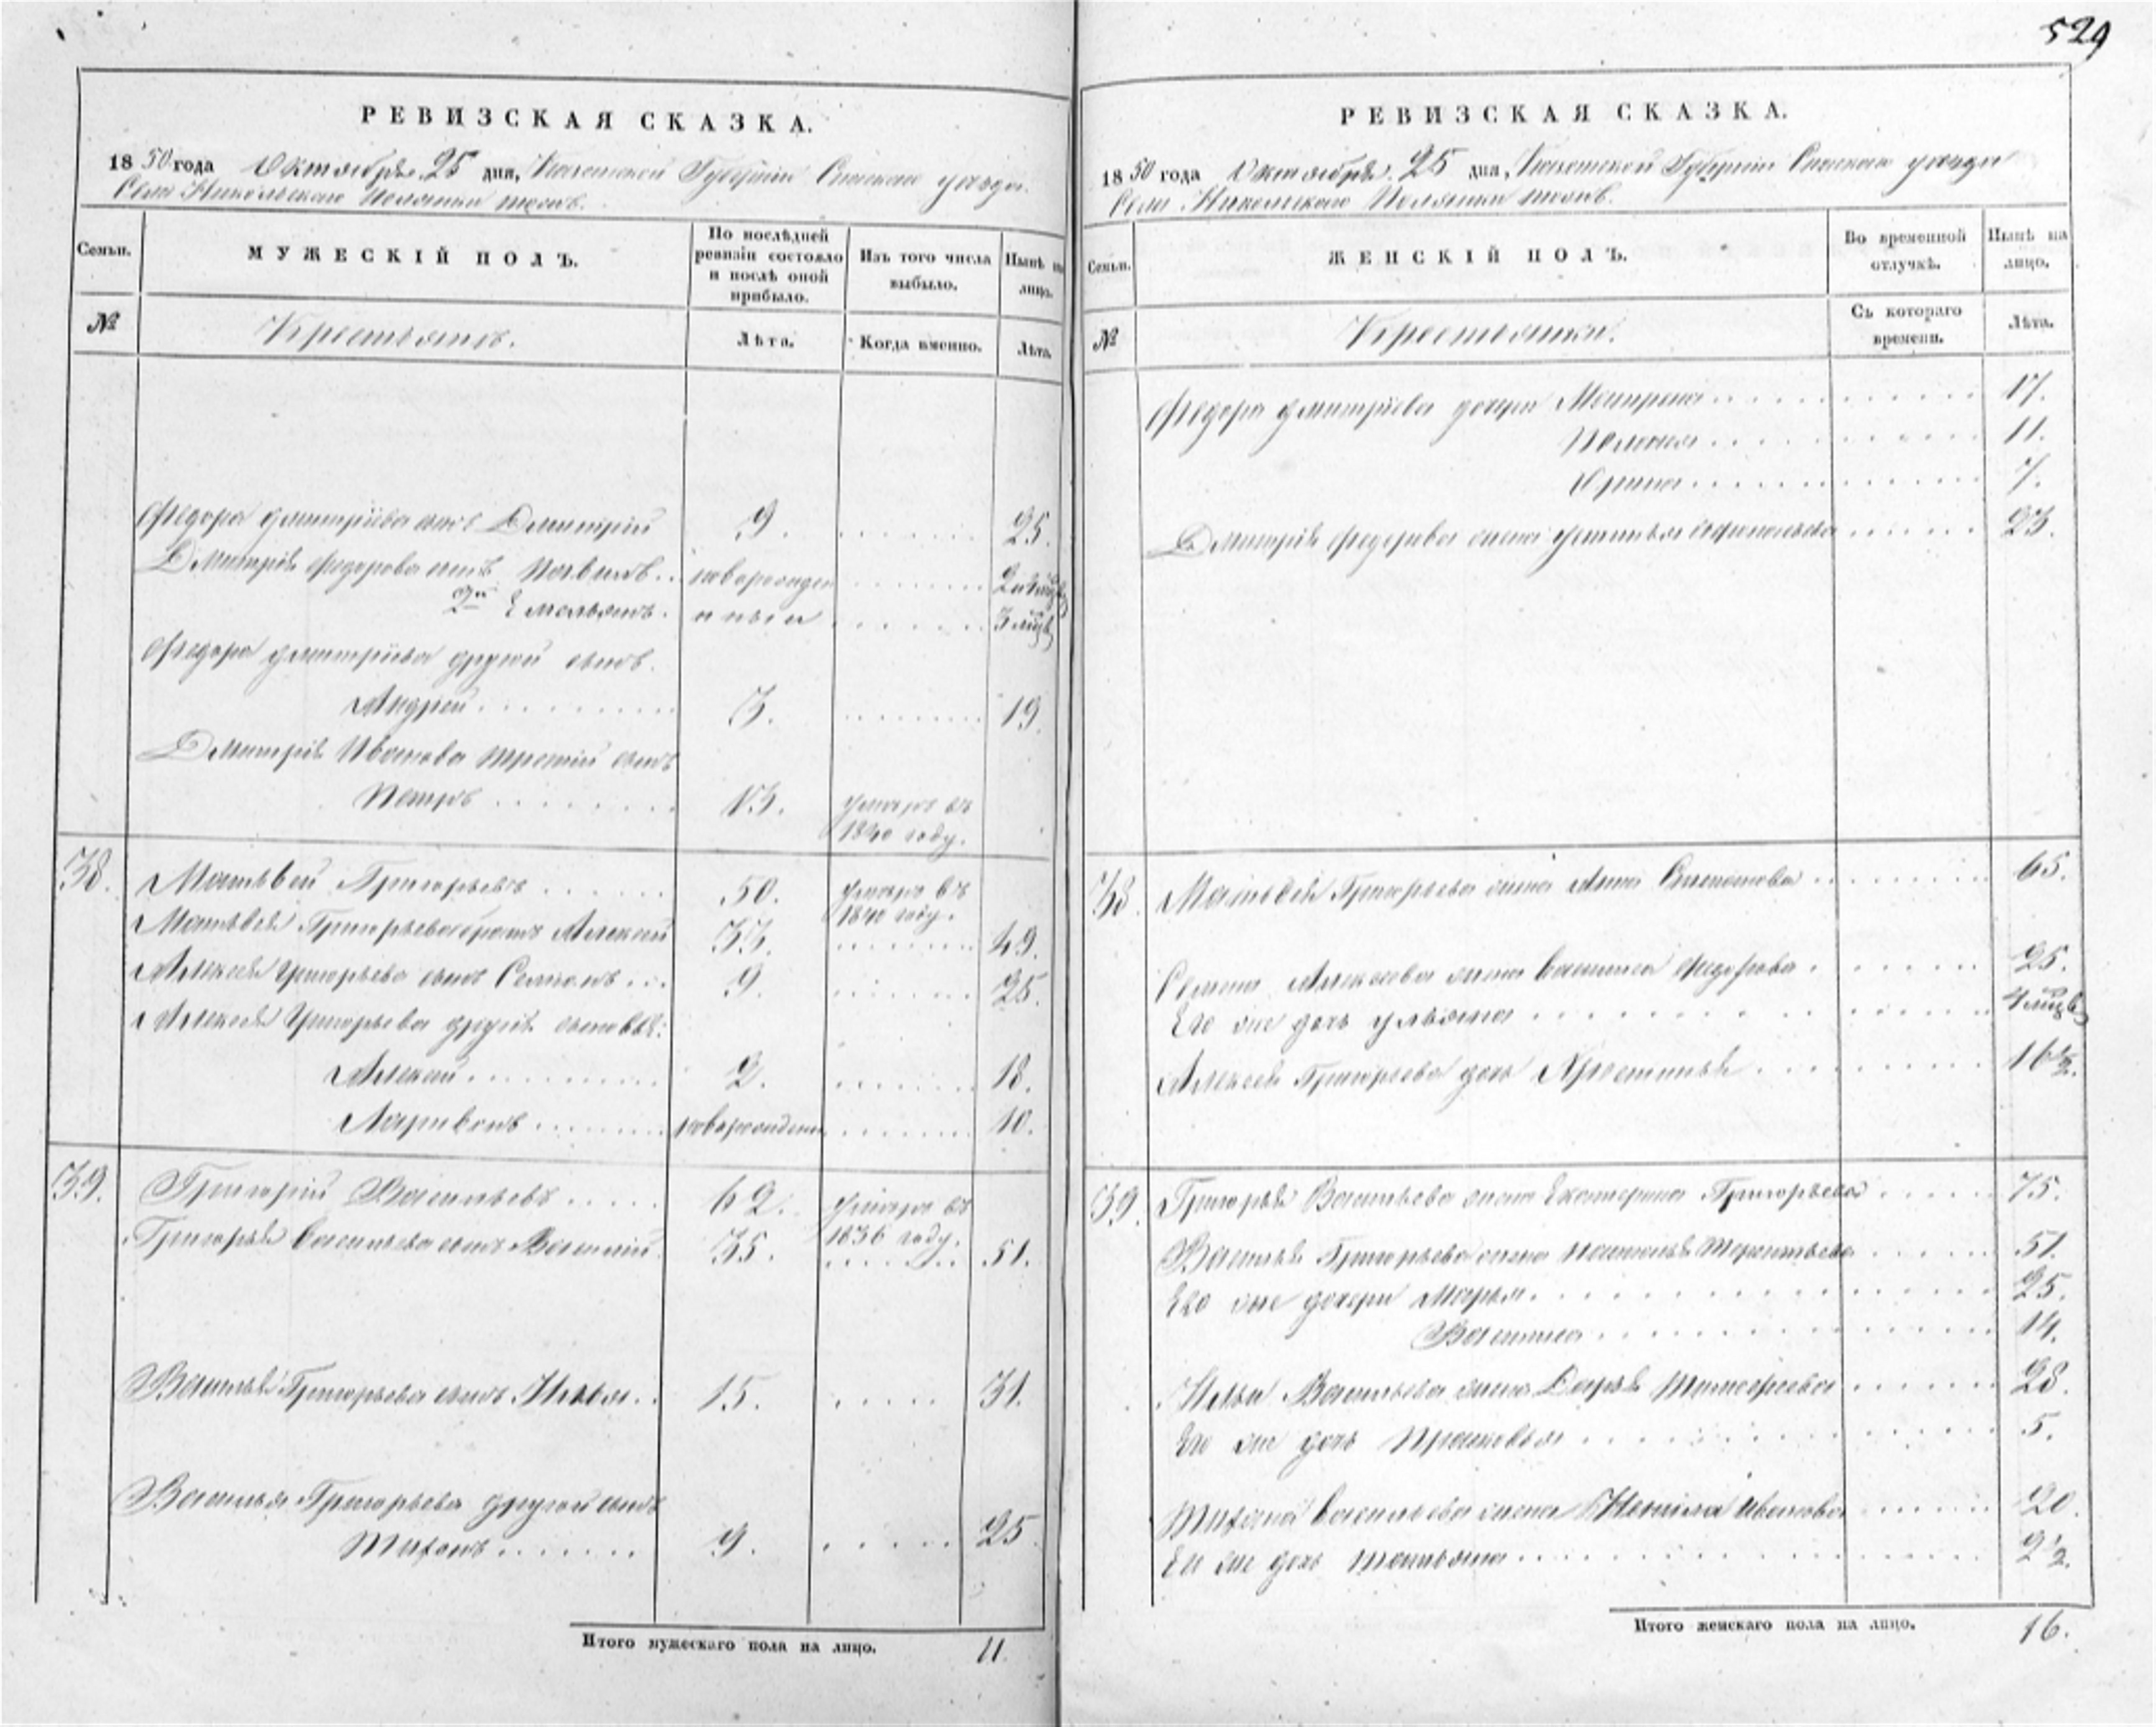 529
РЕВИЗСКАЯ СКАЗКА.
1850 года Октября 25 дня, Казанской Губернии Спаскаго уезда
Села Никольскаго Полянки тожъ.
Семьи.
МУЖЕСКІЙ ПОЛЪ.
По послѣдней ревизіи состояло и послѣ оной прибыло.
Изъ того числа выбыло.
Нынѣ на лицо.
№
Крестьянъ.
Лѣта.
Когда именно.
Лѣта.
Федора Дмитріева сынъ Дмитрій 9. 25.
Дмитрія Федорова сынъ Павилъ новорожден
2й Емельянъ. нныи
Федора Дмитріева другой сынъ.
Андрей 3. 19.
Дмитрія Иванова третій сынъ
Петръ 13. умеръ въ 1840 году.
38. Матьвей Григорьевъ 50. умеръ въ 1840 году.
Матьвея Григорьева братъ Алексей 33. 49.
Алексея Григорьева сынъ Семионъ 9. 25.
Алексея Григорьева другія сыновья:
Алексей 2. 18.
Ларивонъ новорожденн 10.
39. Григорій Васильевъ 62. умеръ въ 1836 году.
Григорья Васильева сынъ Василій 35. 51.
Василья Григорьева сынъ Илья 15. 31.
Василья Григорьева другой сынъ
Тихонъ 9. 25
Итого мужескаго пола на лицо. 11.
РЕВИЗСКАЯ СКАЗКА.
1850 года Октября 25 дня, Казанской Губерніи Спаскаго уезда
Села Никольскаго Полянки тожъ.
Семьи.
ЖЕНСКІЙ ПОЛЪ.
Во временной отлучкѣ.
Нынѣ на лицо.
№
Крестьянки.
Съ котораго времени.
Лѣта.
Федора Дмитріева дочери Матрена 17.
Пелагея 11.
Орина 7.
Дмитрія Федорова жена Устинья 23.
38. Матьвея Григорьева жена Анна 65.
Алексеева жена Василиса Федорова 25.
Его же дочь Ульяна
Алексея Григорьева дочь 16½.
39. Григорья Васильева жена Екатерина Григорьева 75.
Василья Григорьева жена Наталья Терентьева 51.
Его же дочери Марья 25.
Василиса 14.
Ильи Васильева жена Дарья Тимофеева 28.
Его же дочь Прасковья 5.
Тихона Васильева жена Ненила Иванова 20.
Его же дочь Татьяна 2½.
Итого женскаго пола на лицо. 16.